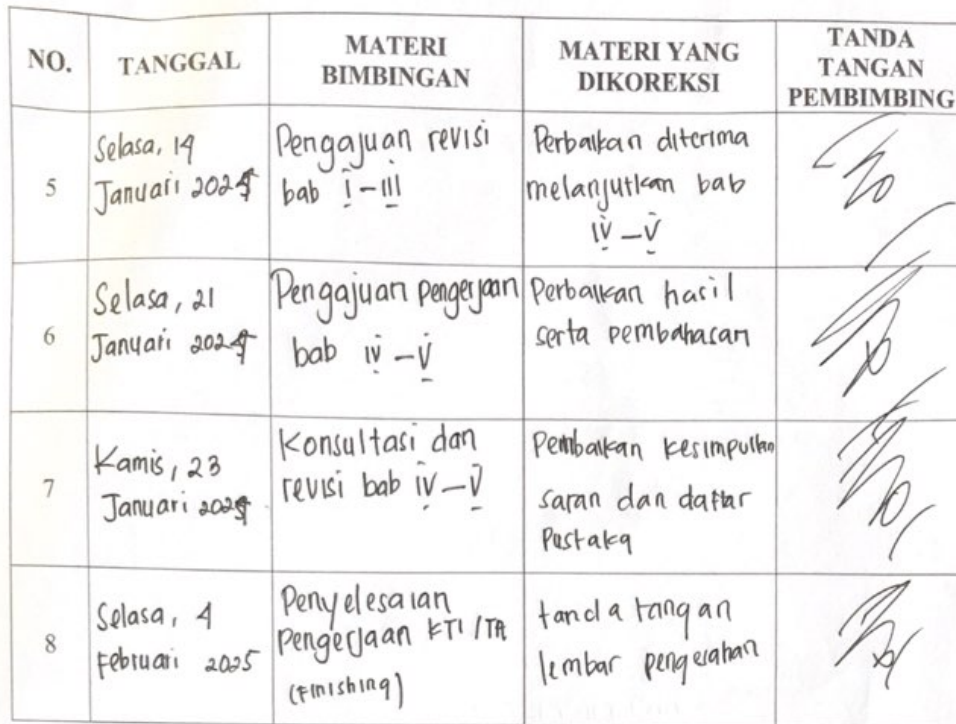 NO.
TANGGAL
MATERI
BIMBINGAN
MATERI YANG
DIKOREKSI
TANDA
TANGAN
PEMBIMBING
5
Selasa, 14
Januari 2025
Pengajuan revisi
bab I-III
Perbaikan diterima
melanjutkan bab
IV-V
6
Selasa, 21
Januari 2025
Pengajuan pengerjaan
bab IV-V
Perbaikan hasil
serta pembahasan
7
Kamis, 23
Januari 2025
Konsultasi dan
revisi bab IV-V
Perbaikan kesimpulan
saran dan daftar
Pustaka
8
Selasa, 4
Februari 2025
Penyelesaian
Pengerjaan KTI/TA
(Finishing)
tanda tangan
lembar pengesahan